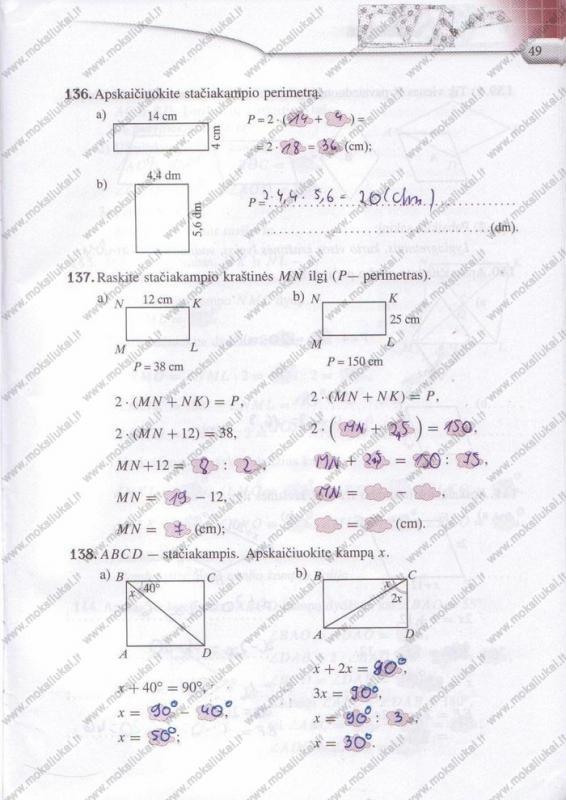 49
136. Apskaičiuokite stačiakampio perimetrą.
a) 14 cm
4 cm
P = 2 · (14 + 4) =
= 2 · 18 = 36 (cm);
b) 4,4 dm
5,6 dm
P = 2·4,4 · 5,6 = 20 (dm)
(dm).
137. Raskite stačiakampio kraštinės MN ilgį (P — perimetras).
a) N 12 cm K
M L
P = 38 cm
2 · (MN + NK) = P,
2 · (MN + 12) = 38,
MN + 12 = 8 : 2,
MN = 19 − 12,
MN = 7 (cm);
b) N K
25 cm
M L
P = 150 cm
2 · (MN + NK) = P,
2 · (MN + 25) = 150,
MN + 25 = 150 : 75,
MN = − ,
= (cm).
138. ABCD — stačiakampis. Apskaičiuokite kampą x.
a) B C
x 40°
A D
x + 40° = 90°,
x = 90° − 40°
x = 50°;
b) B C
x
2x
A D
x + 2x = 90°,
3x = 90°,
x = 90° : 3,
x = 30°.
www.mokaliukai.lt